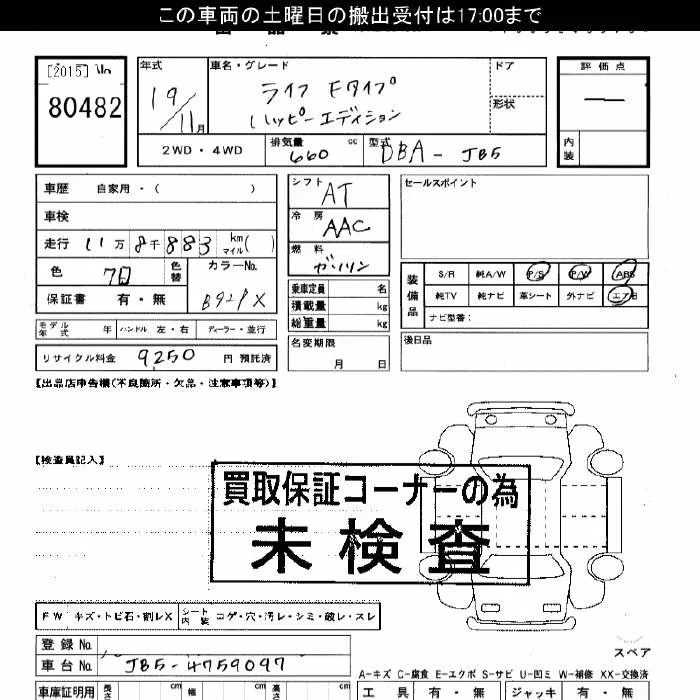 この車両の土曜日の搬出受付は17:00まで
[2015] No
80482
年式 19/11月
車名・グレード
ライフ Fタイプ
ハッピーエディション
ドア
形状
評価点
―
内装
2WD・4WD
排気量 660 cc
型式 DBA-JB5
車歴 自家用・( )
車検
走行 11万8千883 km マイル( )
色
色替
カラーNo.
保証書 有・無
シフト AT
冷房 AAC
燃料 ガソリン
乗車定員 名
積載量 kg
総重量 kg
名変期限
月 日
セールスポイント
装備品
S/R 純A/W P/S P/W ABS
純TV 純ナビ 革シート 外ナビ エアB
ナビ型番:
後日品
モデル年式 年 ハンドル 左・右 ディーラー・並行
リサイクル料金 9250 円 預託済
【出品店申告欄(不良箇所・欠品・注意事項等)】
【検査員記入】
買取保証コーナーの為
未検査
FW キズ・トビ石・割レX
シート内装 コゲ・穴・汚レ・シミ・破レ・スレ
登録No.
車台No. JB5-4759097
スペア
A-キズ C-腐食 E-エクボ S-サビ U-凹ミ W-補修 XX-交換済
車庫証明用 長さ cm 幅 cm 高さ cm
工具 有・無 ジャッキ 有・無